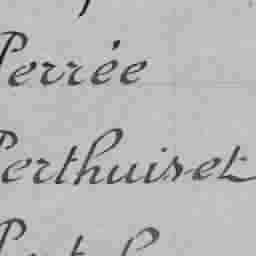 Perrée
Perthuiset